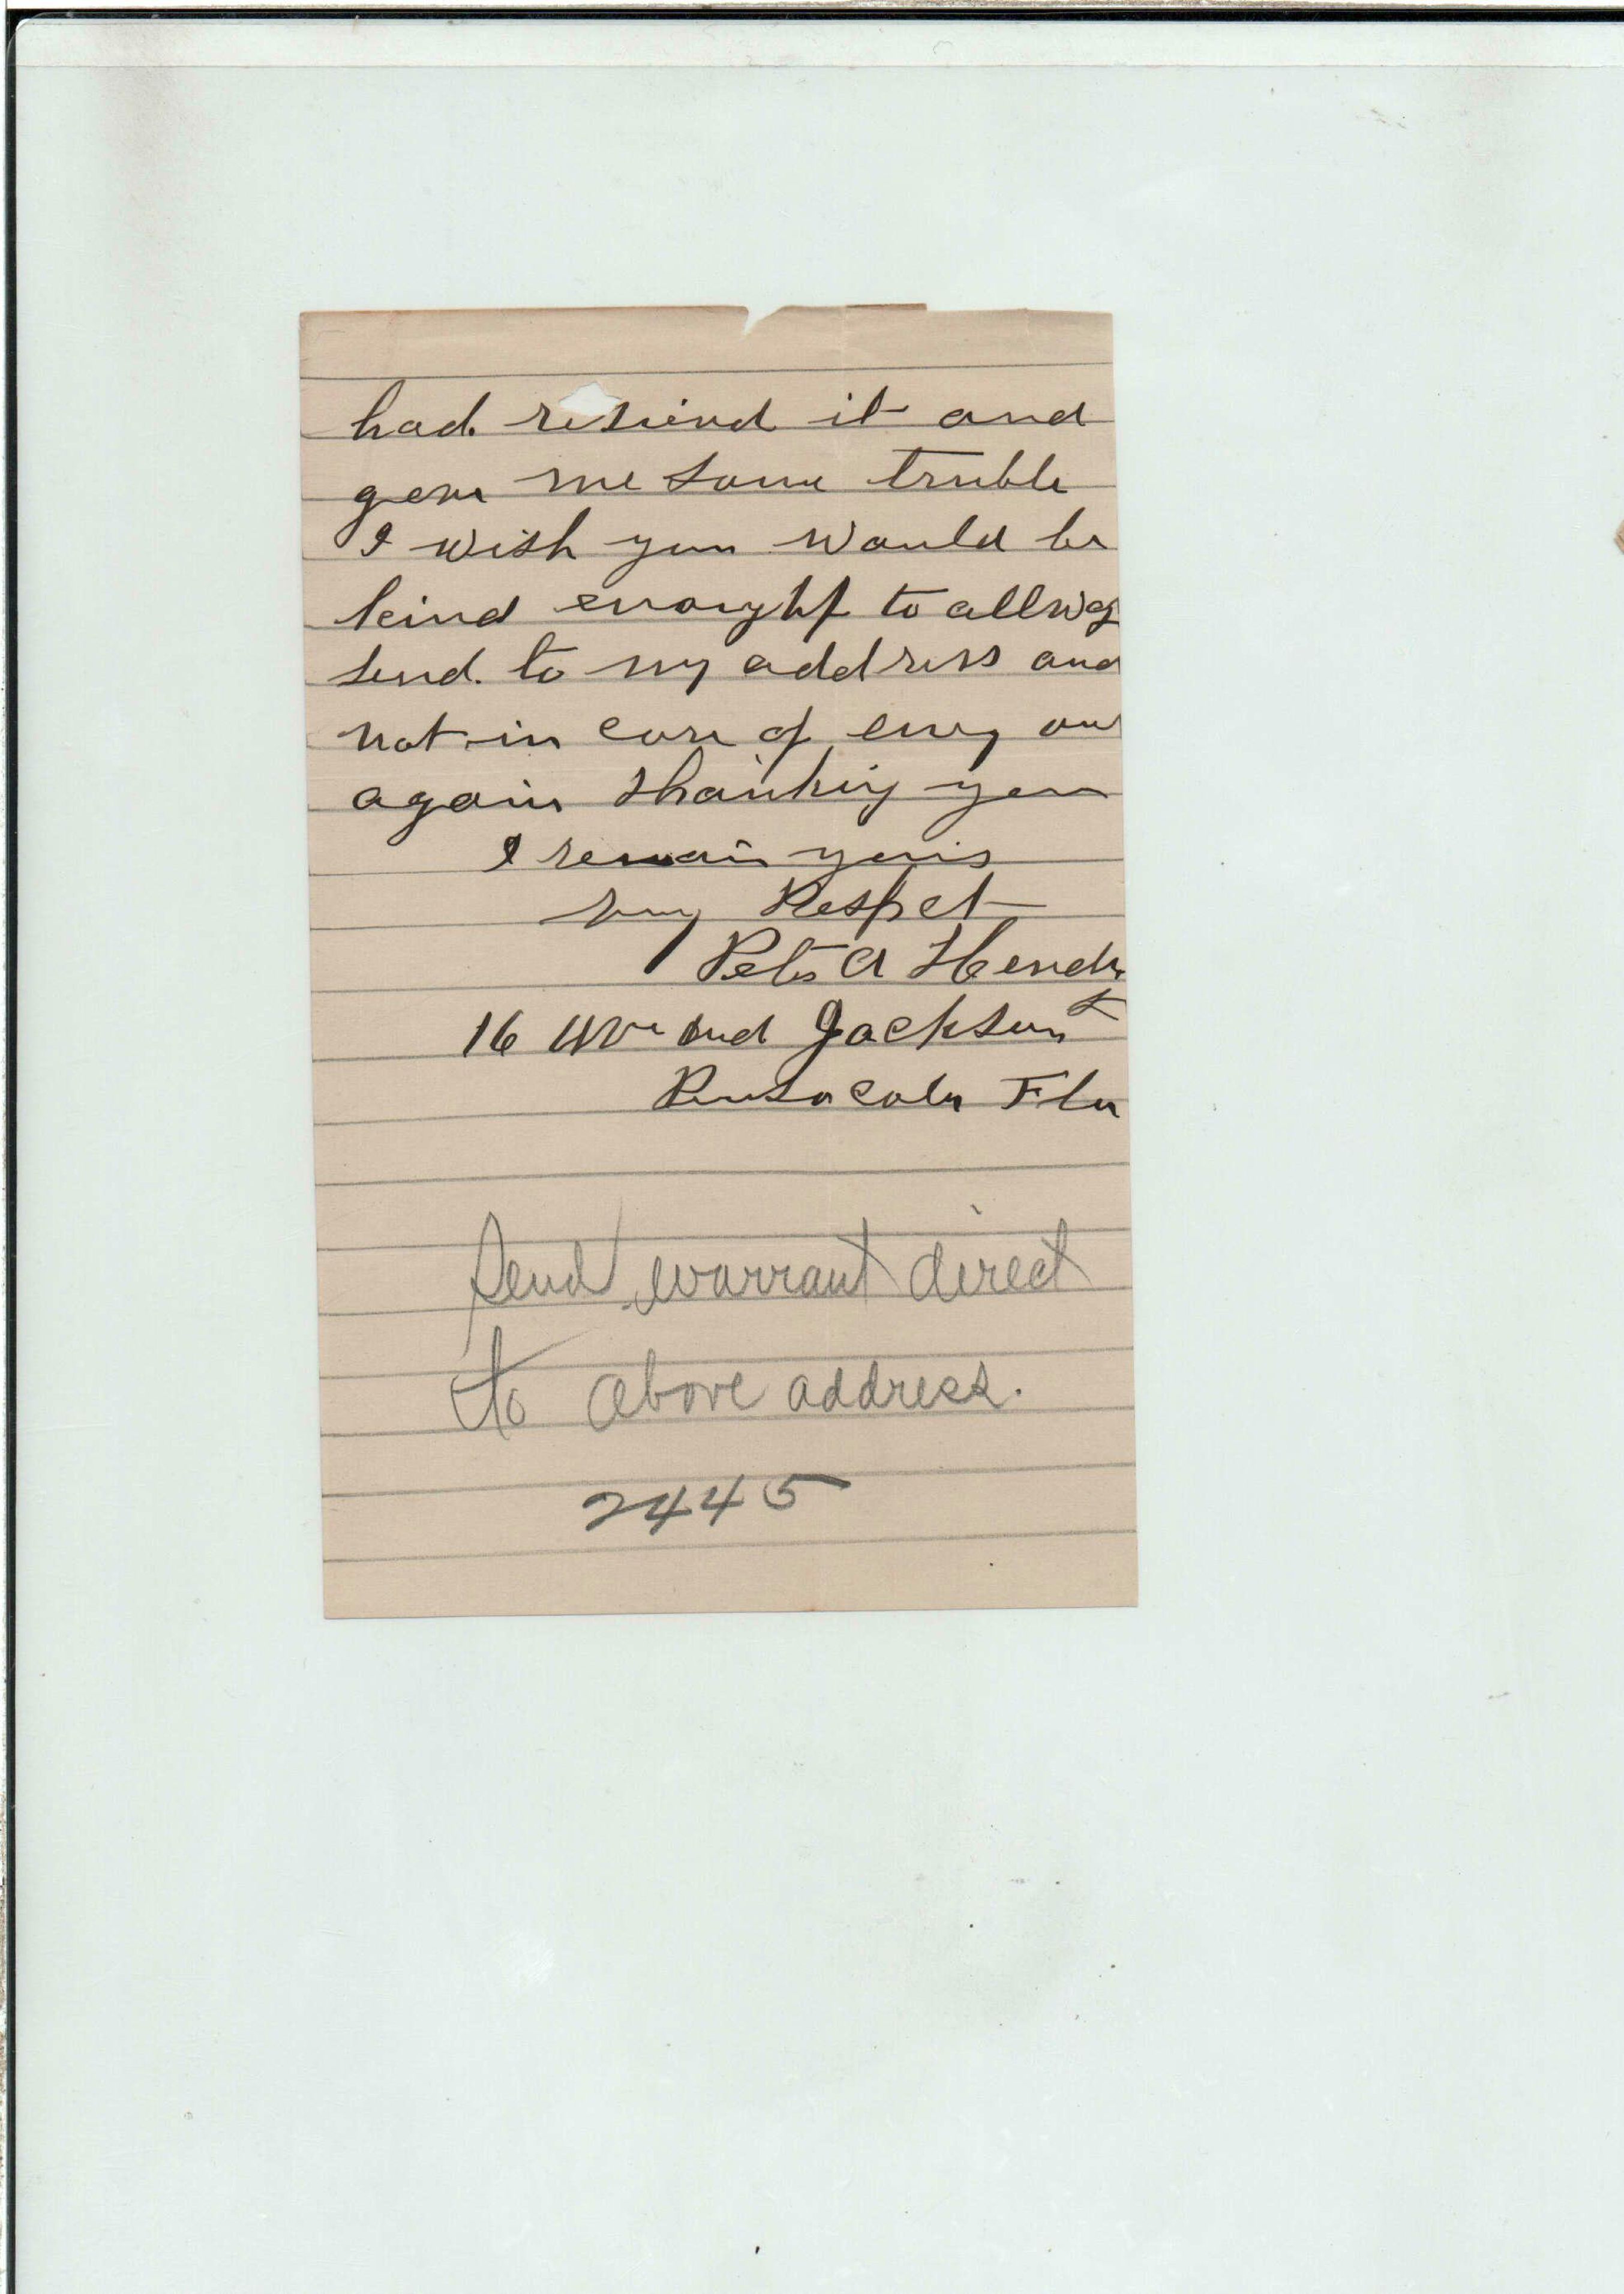 had resievd it and
gave me some truble
I wish you would be
kind enought to allway
send to my address and
not in care of eney one
again thanking you
I remain yours
very Respet
Peter A Hendr
16 Ave and Jackson St
Pensacola Fla
Send warrant direct
to above address.
2445